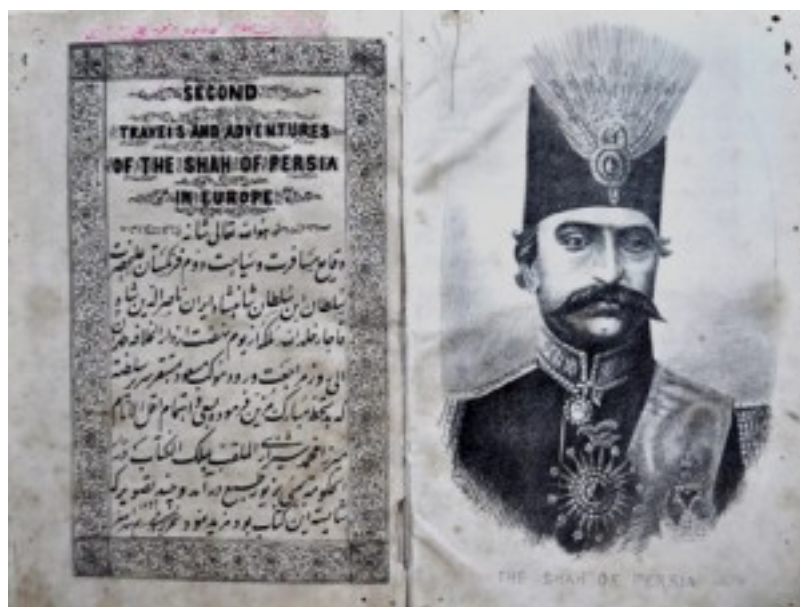 SECOND
TRAVELS AND ADVENTURES
OF THE SHAH OF PERSIA
IN EUROPE
هو الله تعالی شانه
وقایع مسافرت و سیاحت دوم فرنگستان
سلطان ابن سلطان شاهنشاه ایران ناصرالدین شاه
قاجار خلدالله ملکه از یوم نهضت از دار الخلافه طهران
الی روز مراجعت و ورود موکب مسعود بمستقر سریر سلطنه
که بخط مبارک مزین فرموده بسعی و اهتمام اقل الانام
میرزا محمد شیرازی الملقب بملک الکتاب در
بزیور طبع در آمد و چند تصویر که
شایسته این کتاب بود مزید نمود
THE SHAH OF PERSIA